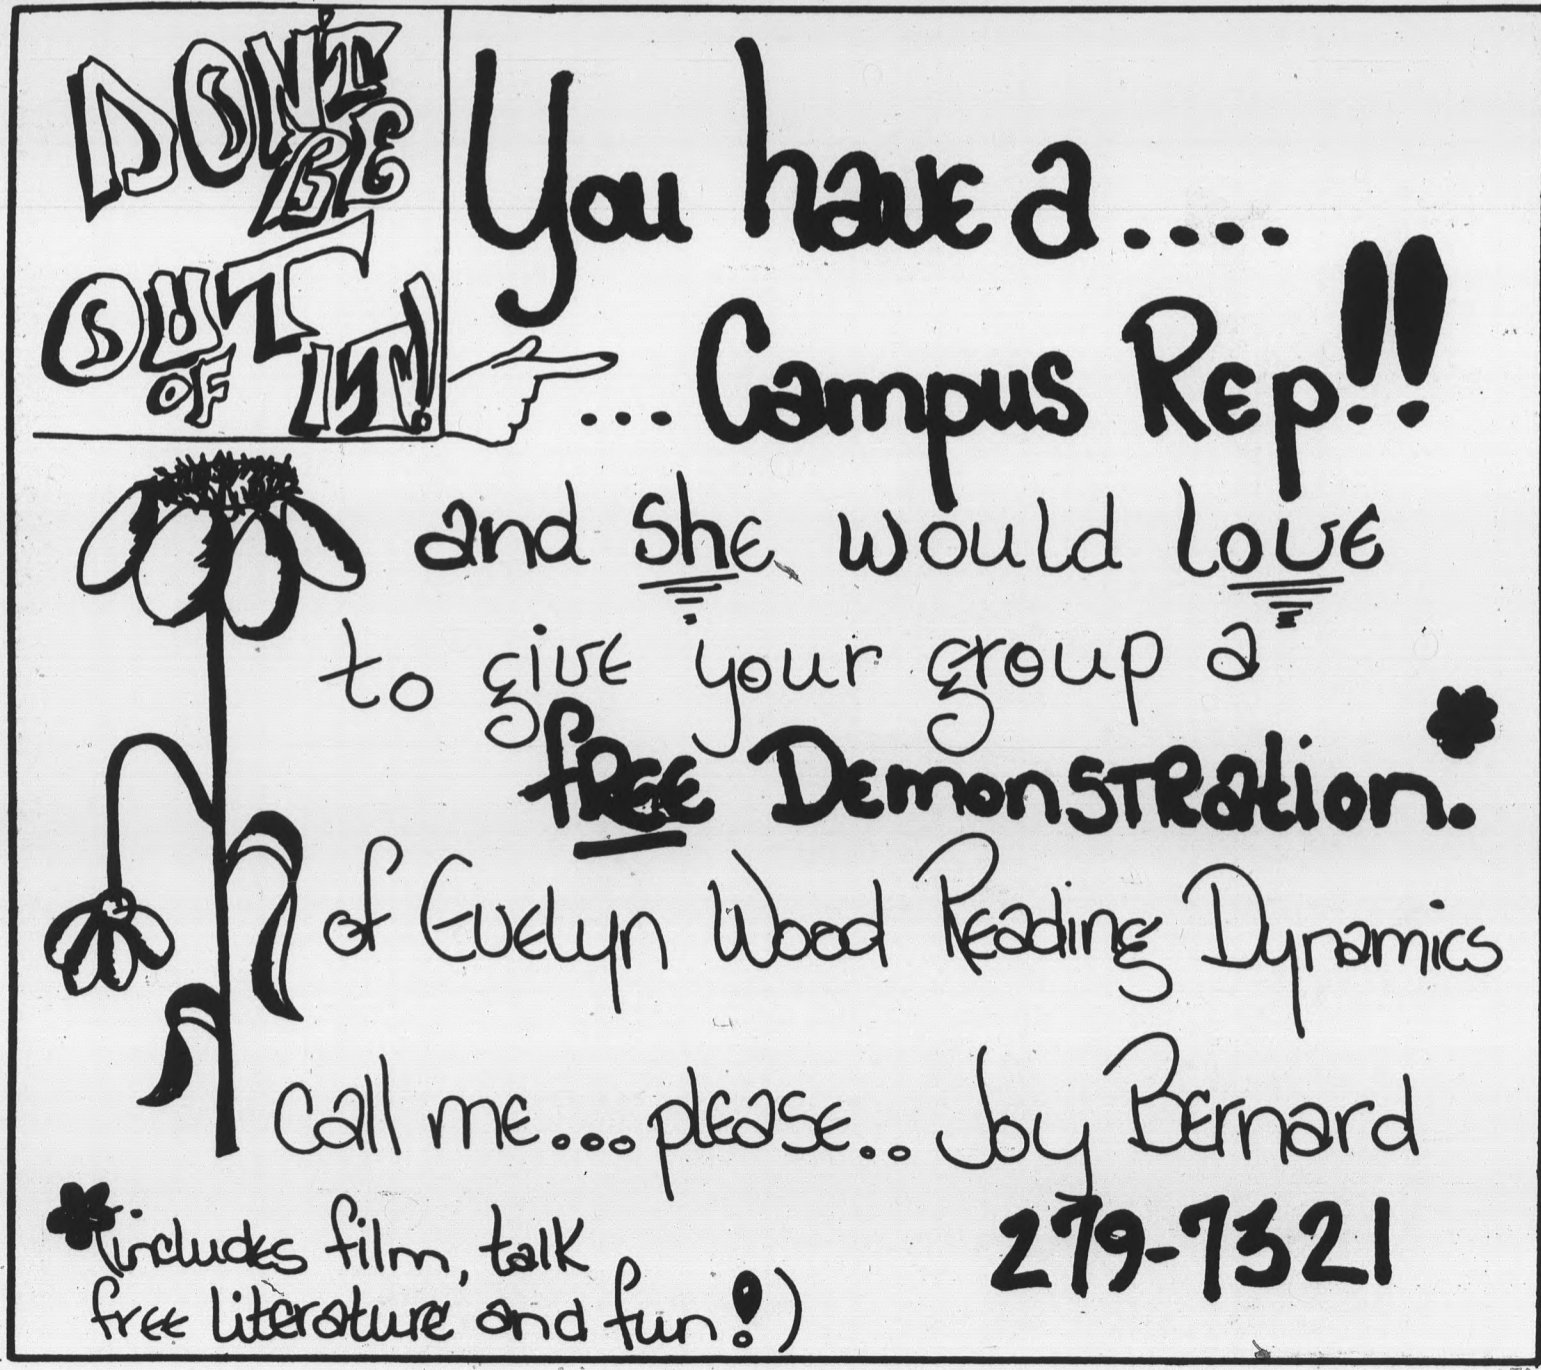 DON'T
BE
OUT
OF IT!
You have a....
...Campus Rep!!
and she would love
to give your group a
free Demonstration.*
of Evelyn Wood Reading Dynamics
call me...please.. Joy Bernard
279-7321
*(includes film, talk
free literature and fun!)